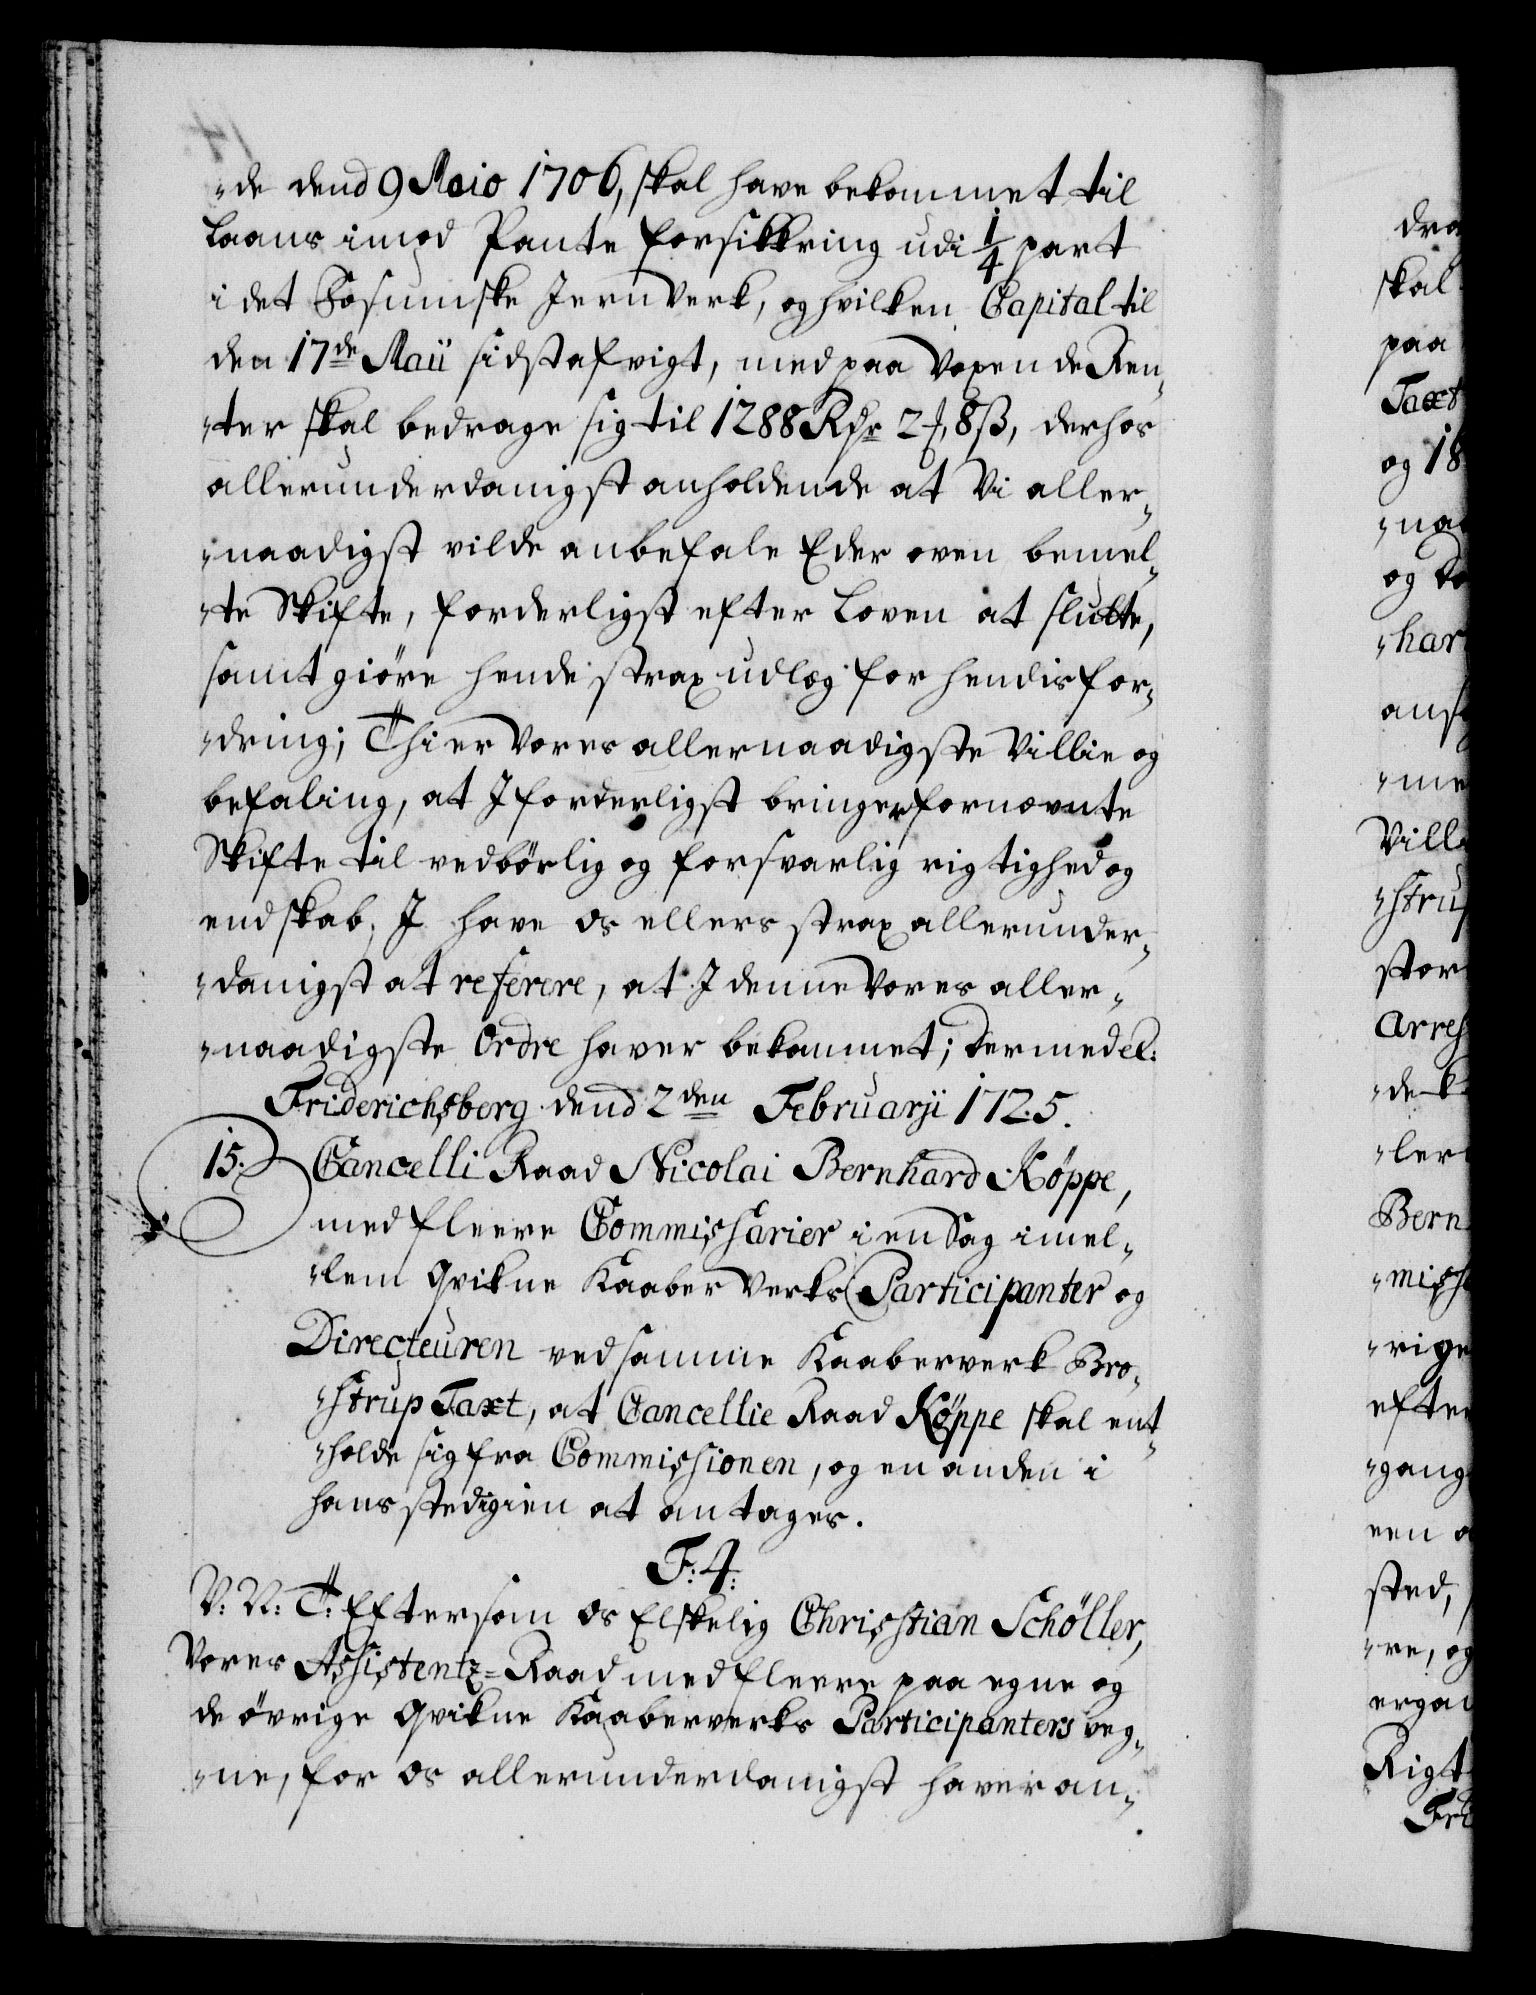 "de dend 9 Maio 1706, skal have bekommet til
Laans imod Pante forsikkring udi 1/4 part
i det Fosumske JernVerk, og hvilken Capital til
den 17de Maii sidstafvigt, med paa Voxende Ren„
"ter skal bedrage sig til 1288 Rdr 2 f, 8 ß, derhos
allerunderdanigst anholdende at Vi aller„
"naadigst vilde anbefale Eder oven bemel„
"te Skifte, forderligst efter Loven at slutte,
samt giöre hende strax udlæg for hendis for„
"dring; Thi er Vores allernaadigste Villie og
befaling, at J forderligst bringer fornævnte
Skifte til vedbörlig og forsvarlig rigtighed og
endskab; J have os ellers strax allerunder„
"danigst at referere, at J denne Vores aller„
"naadigste Ordre haver bekommet; dermed el:
Friderichsberg dend 2den Februarii 1725.
15. Cancelli Raad Nicolai Bernhard Köppe,
med fleere Commissarier i en Sag imel„
"lem Qvikne Kaaber Verks Participanter og
Directeuren ved samme Kaaberverk Bro„
"strup Taxt, at Cancellie Raad Köppe skal ent„
"holde sig fra Commissionen, og en anden i
hans stedigien at antages.
F: 4:
V: N: T: Eftersom os Elskelig Christian Schöller,
Vores Assistentz=Raad med fleere paa egne og
de övrige Qvikne Kaaberverks Participanters veg„
"ne, for os allerunderdanigst haver an„
dra
skal
paa
Taxt
og 18
"naa
"har
"me
"strup
stor
Arres
"de
"ler
Bern
"misse
"rige
efter
"gang
een
sted,
"re, og
ergan
Rigt
Fri